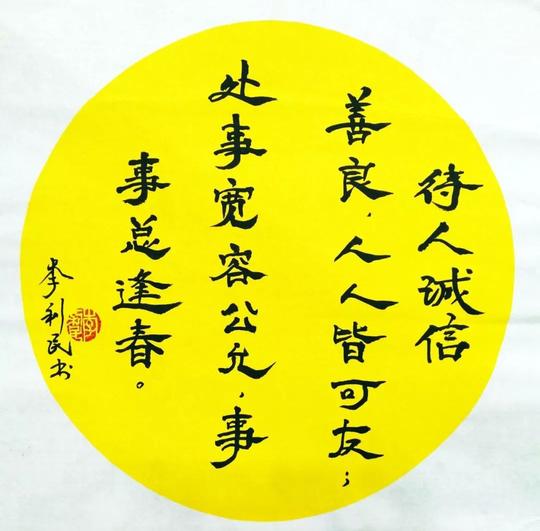 待人诚信
善良，人人皆可友；
处事宽容公允，事
事总逢春。
李利民书